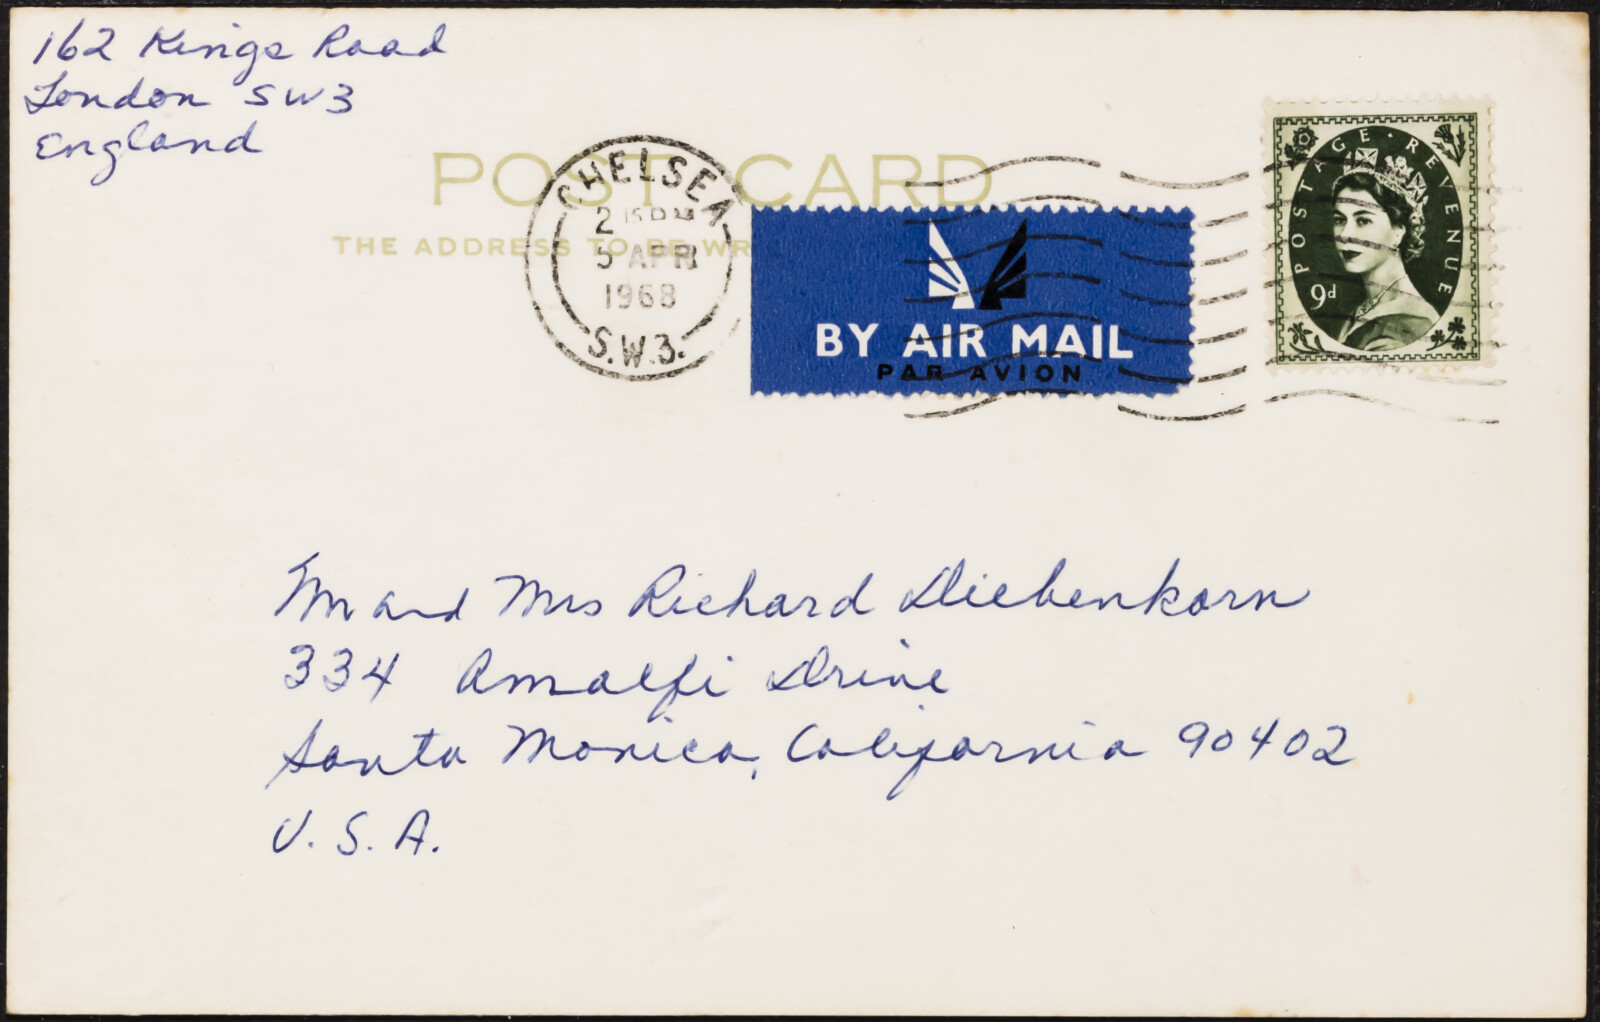 162 Kings Road
London SW3
England
POST CARD
THE ADDRESS TO BE WR
CHELSEA
5 APR
1968
S.W.3.
BY AIR MAIL
PAR AVION
POSTAGE REVENUE
9d
Mr and Mrs Richard Diebenkorn
334 Amalfi Drive
Santa Monica, California 90402
U.S.A.